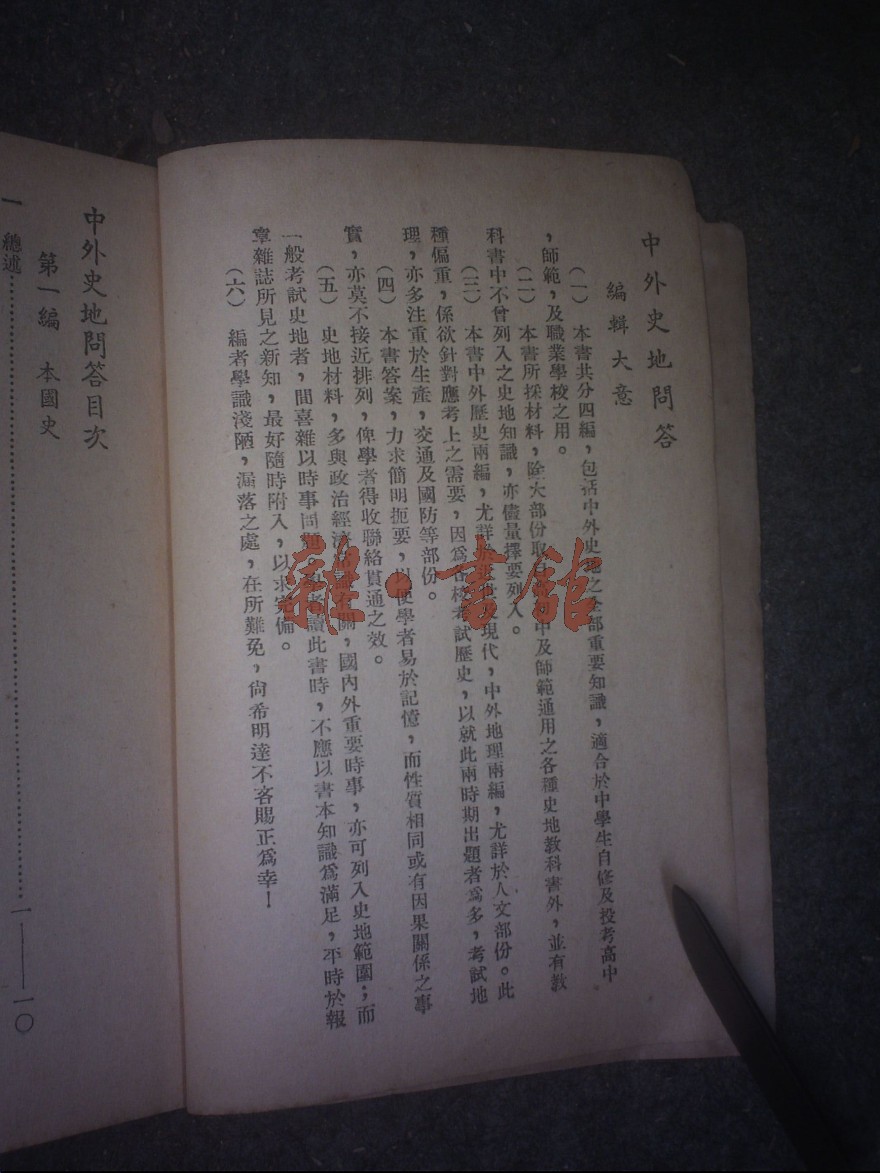 中外史地問答
編輯大意
(一) 本書共分四編,包括中外史地之全部重要知識,適合於中學生自修及投考高中
,師範,及職業學校之用。
(二) 本書所採材料,除大部份取自中及師範通用之各種史地敎科書外,並有敎
科書中不曾列入之史地知識,亦儘量擇要列入。
(三) 本書中外歷史兩編,尤詳於近世及現代,中外地理兩編,尤詳於人文部份。此
種偏重,係欲針對應考上之需要,因爲各校考試歷史,以就此兩時期出題者爲多,考試地
理,亦多注重於生產,交通及國防等部份。
(四) 本書答案,力求簡明扼要,以便學者易於記憶,而性質相同或有因果關係之事
實,亦莫不接近排列,俾學者得收聯絡貫通之效。
(五) 史地材料,多與政治經濟有關,國內外重要時事,亦可列入史地範圍;而
一般考試史地者,間喜雜以時事問題。讀此書時,不應以書本知識爲滿足,平時於報
章雜誌所見之新知,最好隨時附入,以求完備。
(六) 編者學識淺陋,漏落之處,在所難免,尙希明達不吝賜正爲幸!
中外史地問答目次
第一編 本國史
一 總述……………………一——一〇
雜·書館